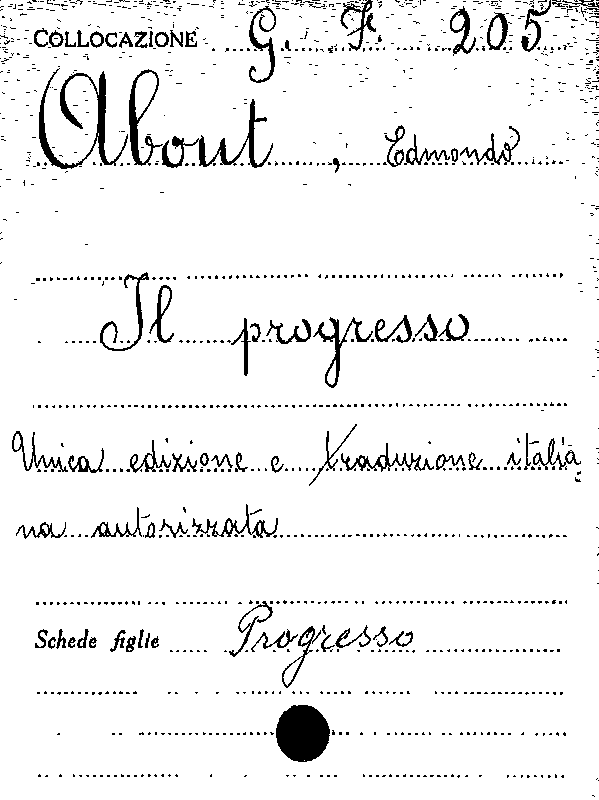 COLLOCAZIONE G. F. 205
About, Edmondo
Il progresso
Unica edizione e traduzione italia-
na autorizzata
Schede figlie Progresso